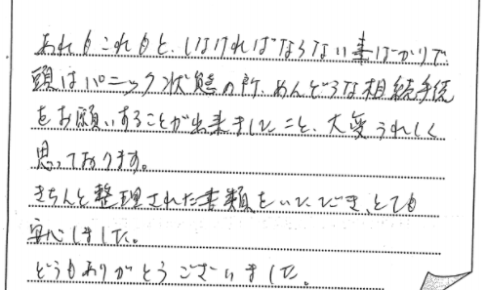 あれもこれもと、しなければならない事ばかりで
頭はパニック状態の所、めんどうな相続手続
をお願いすることが出来ましたこと、大変うれしく
思っております。
きちんと整理された書類をいただき、とても
安心しました。
どうもありがとうございました。